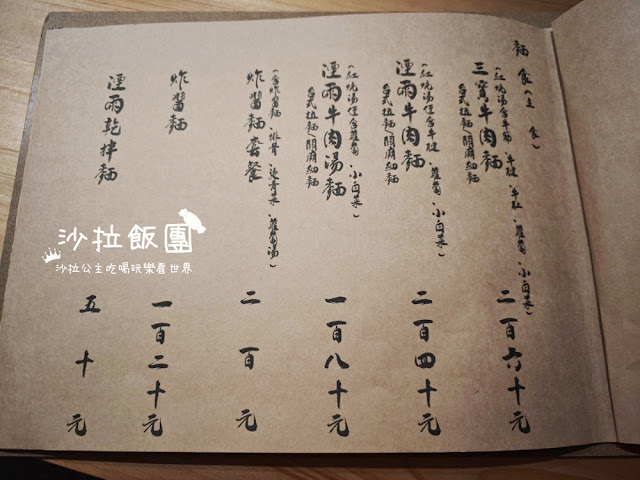 麵食(主食)
三寶牛肉麵 二百六十元
(紅燒湯保含牛筋、牛腱、牛肚、蘿蔔、小白菜)
台式拉麵/關廟細麵
湮雨牛肉麵 二百四十元
(紅燒湯保含牛腱、蘿蔔、小白菜)
台式拉麵/關廟細麵
湮雨牛肉湯麵 一百八十元
(紅燒湯保含蘿蔔、小白菜)
台式拉麵/關廟細麵
炸醬麵套餐 二百元
(含炸醬麵、排骨、燙青菜、蘿蔔湯)
炸醬麵 一百二十元
湮雨乾拌麵 五十元
沙拉飯團
沙拉公主吃喝玩樂看世界